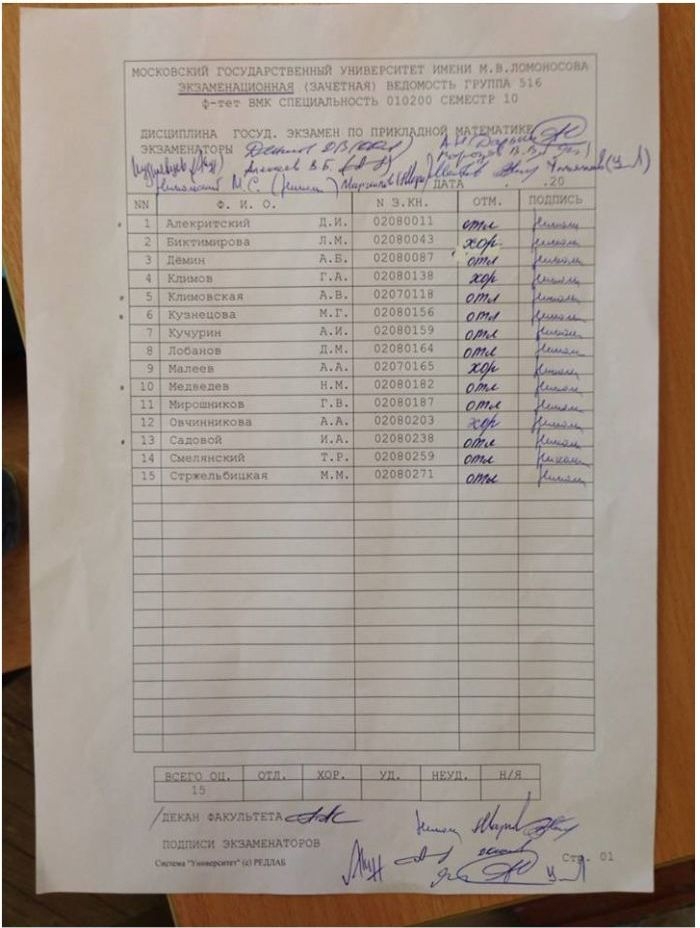 МОСКОВСКИЙ ГОСУДАРСТВЕННЫЙ УНИВЕРСИТЕТ ИМЕНИ М.В.ЛОМОНОСОВА
ЭКЗАМЕНАЦИОННАЯ (ЗАЧЕТНАЯ) ВЕДОМОСТЬ ГРУППА 516
ф-тет ВМК СПЕЦИАЛЬНОСТЬ 010200 СЕМЕСТР 10
ДИСЦИПЛИНА ГОСУД. ЭКЗАМЕН ПО ПРИКЛАДНОЙ МАТЕМАТИКЕ
ЭКЗАМЕНАТОРЫ
М.С.
ДАТА . .20
NN Ф. И. О. N З.КН. ОТМ. ПОДПИСЬ
1 Алекритский Д.И. 02080011 отл
2 Биктимирова Л.М. 02080043 хор
3 Дёмин А.Б. 02080087 отл
4 Климов Г.А. 02080138 хор
5 Климовская А.В. 02070118 отл
6 Кузнецова М.Г. 02080156 отл
7 Кучурин А.И. 02080159 отл
8 Лобанов Д.М. 02080164 отл
9 Малеев А.А. 02070165 хор
10 Медведев Н.М. 02080182 отл
11 Мирошников Г.В. 02080187 отл
12 Овчинникова А.А. 02080203 хор
13 Садовой И.А. 02080238 отл
14 Смелянский Т.Р. 02080259 отл
15 Стржельбицкая М.М. 02080271 отл
ВСЕГО ОЦ. ОТЛ. ХОР. УД. НЕУД. Н/Я
15
/ДЕКАН ФАКУЛЬТЕТА
ПОДПИСИ ЭКЗАМЕНАТОРОВ
Система "Университет" (c) РЕДЛАБ
Стр. 01